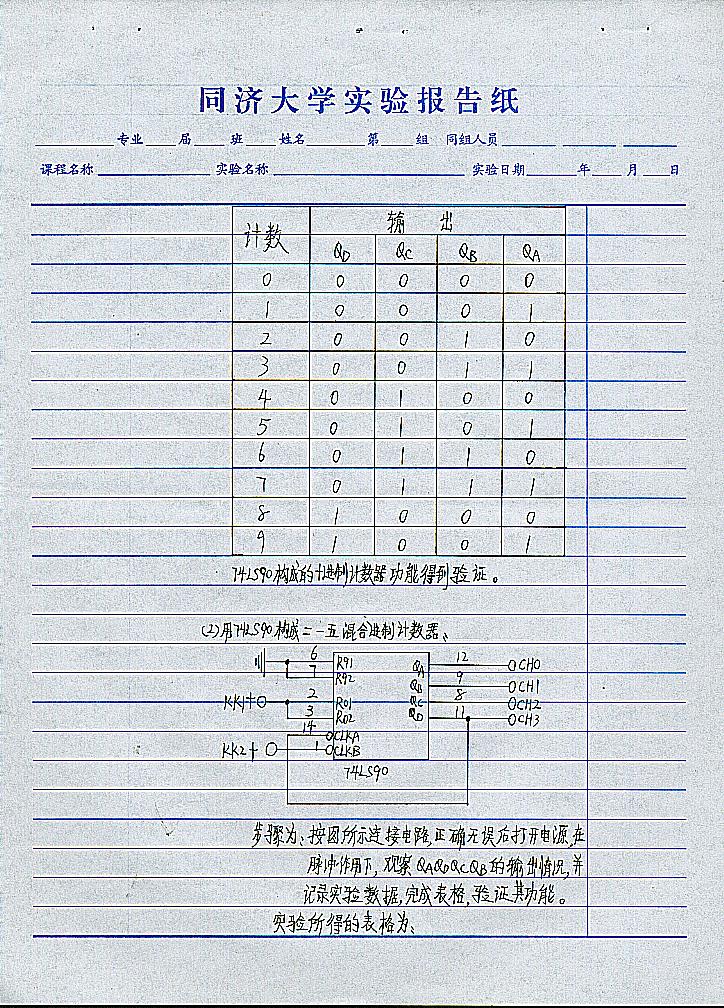 同济大学实验报告纸
专业 届 班 姓名 第 组 同组人员
课程名称 实验名称 实验日期 年 月 日
计数 输 出
QD QC QB QA
0 0 0 0 0
1 0 0 0 1
2 0 0 1 0
3 0 0 1 1
4 0 1 0 0
5 0 1 0 1
6 0 1 1 0
7 0 1 1 1
8 1 0 0 0
9 1 0 0 1
74LS90构成的十进制计数器功能得到验证。
(2)用74LS90构成二—五混合进制计数器、
6 R91 QA 12 CH0
7 R92 QB 9 CH1
KK1+ 2 R01 QC 8 CH2
3 R02 QD 11 CH3
14 CLKA
KK2+ 1 CLKB
74LS90
步骤为、按图所示连接电路,正确无误后打开电源,在
脉冲作用下,观察QAQDQCQB的输出情况,并
记录实验数据,完成表格,验证其功能。
实验所得的表格为、